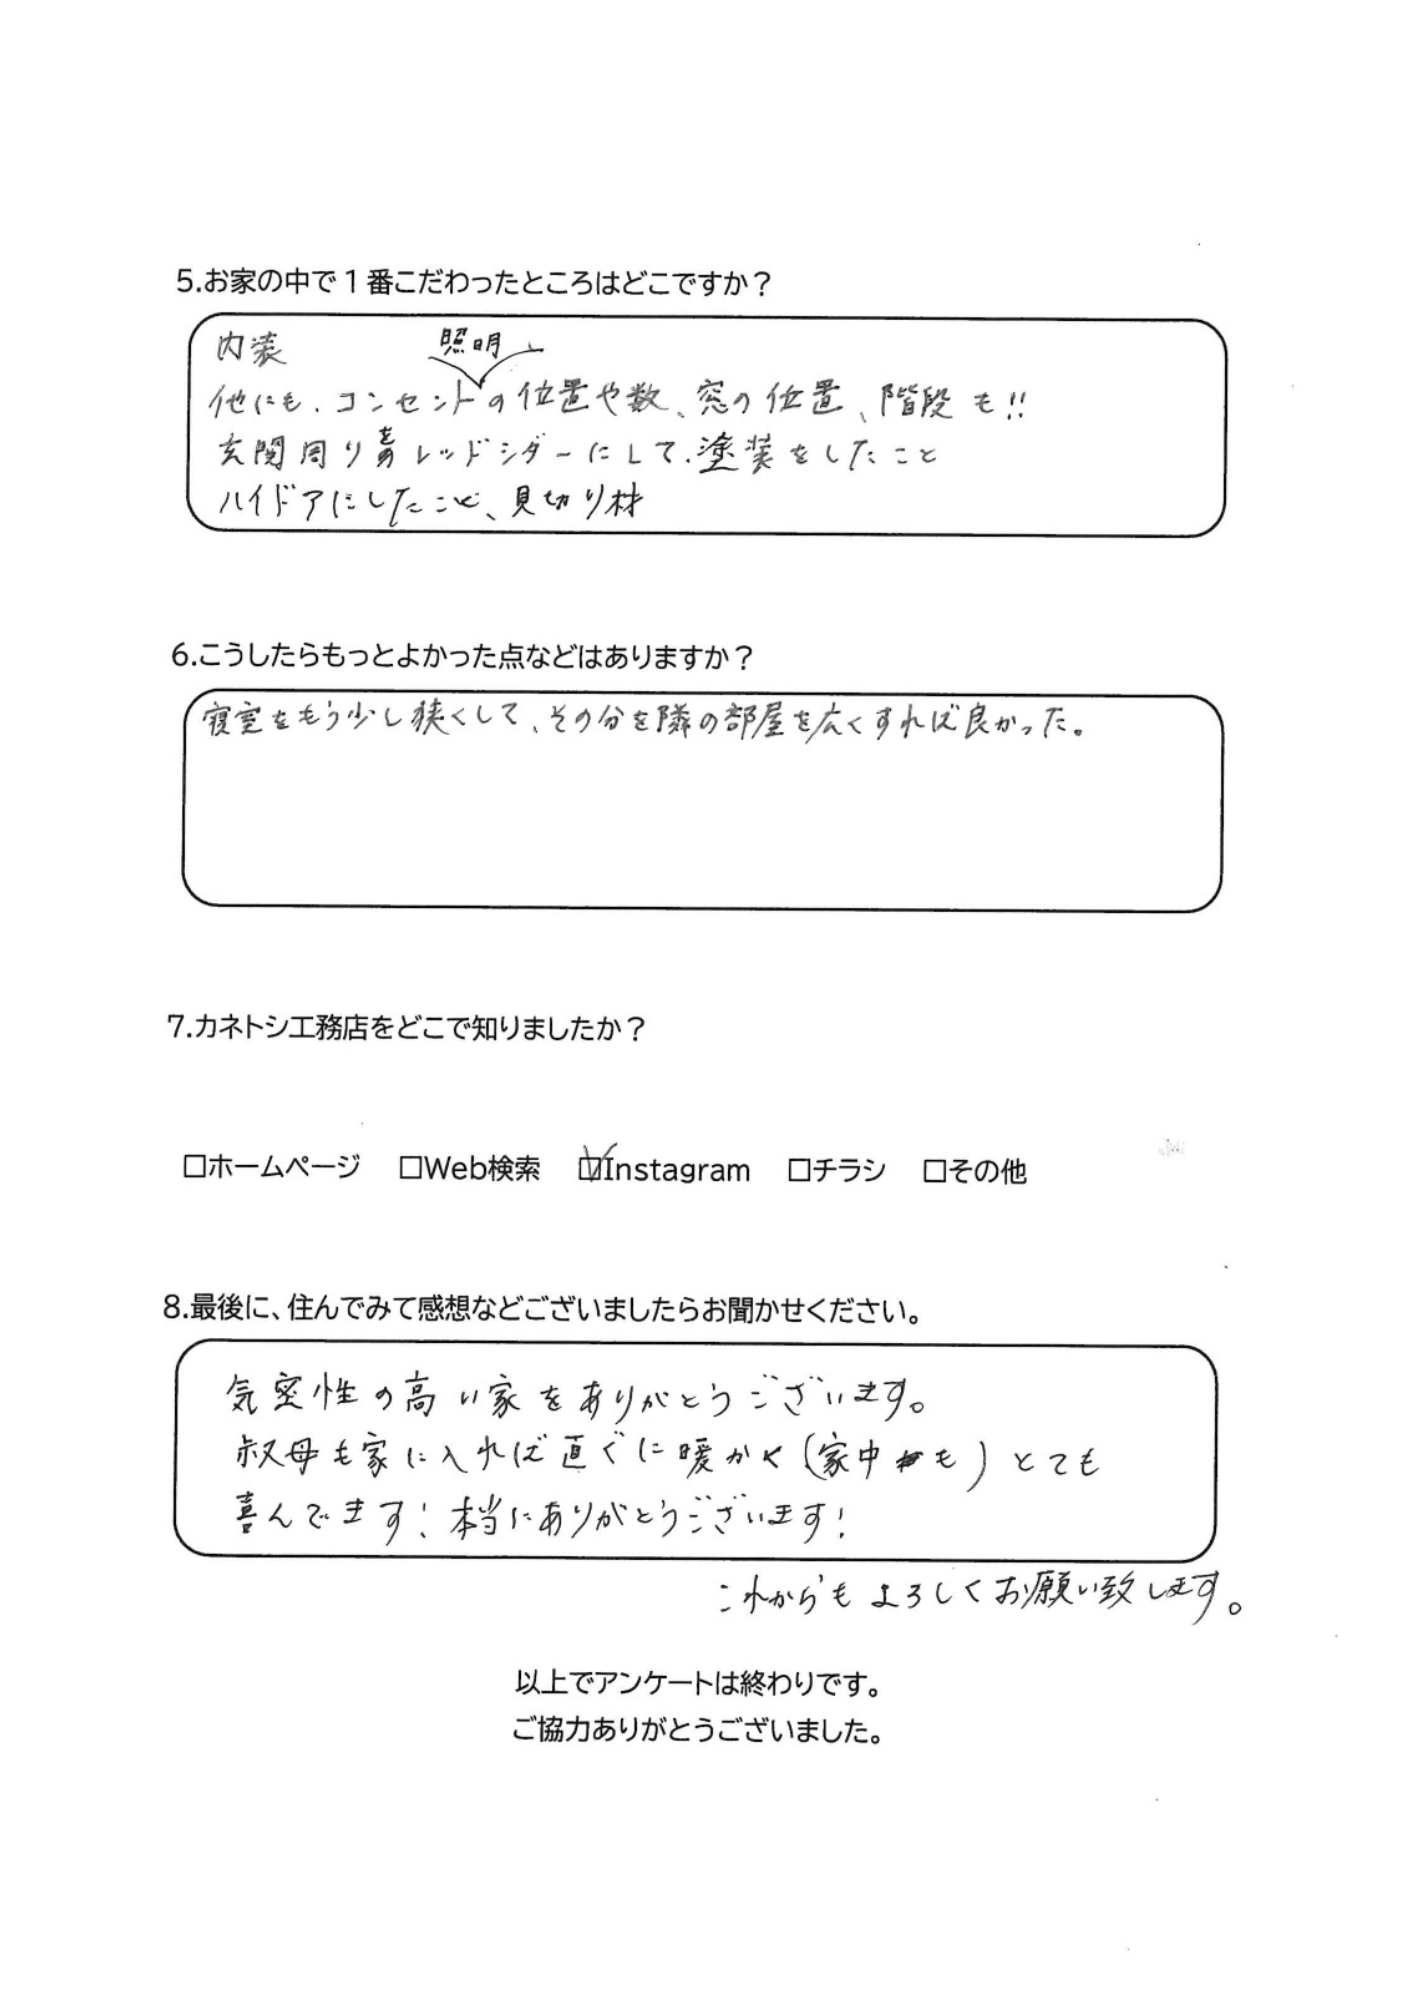 5.お家の中で1番こだわったところはどこですか？
内装
照明
他にも、コンセントの位置や数、窓の位置、階段も!!
玄関周りをレッドシダーにして、塗装をしたこと
ハイドアにしたこと、見切り材
6.こうしたらもっとよかった点などはありますか？
寝室をもう少し狭くして、その分を隣の部屋を広くすれば良かった。
7.カネトシ工務店をどこで知りましたか？
□ホームページ □Web検索 ☑Instagram □チラシ □その他
8.最後に、住んでみて感想などございましたらお聞かせください。
気密性の高い家をありがとうございます。
叔母も家に入れば直ぐに暖かく(家中も)とても
喜んでます!本当にありがとうございます!
これからもよろしくお願い致します。
以上でアンケートは終わりです。
ご協力ありがとうございました。